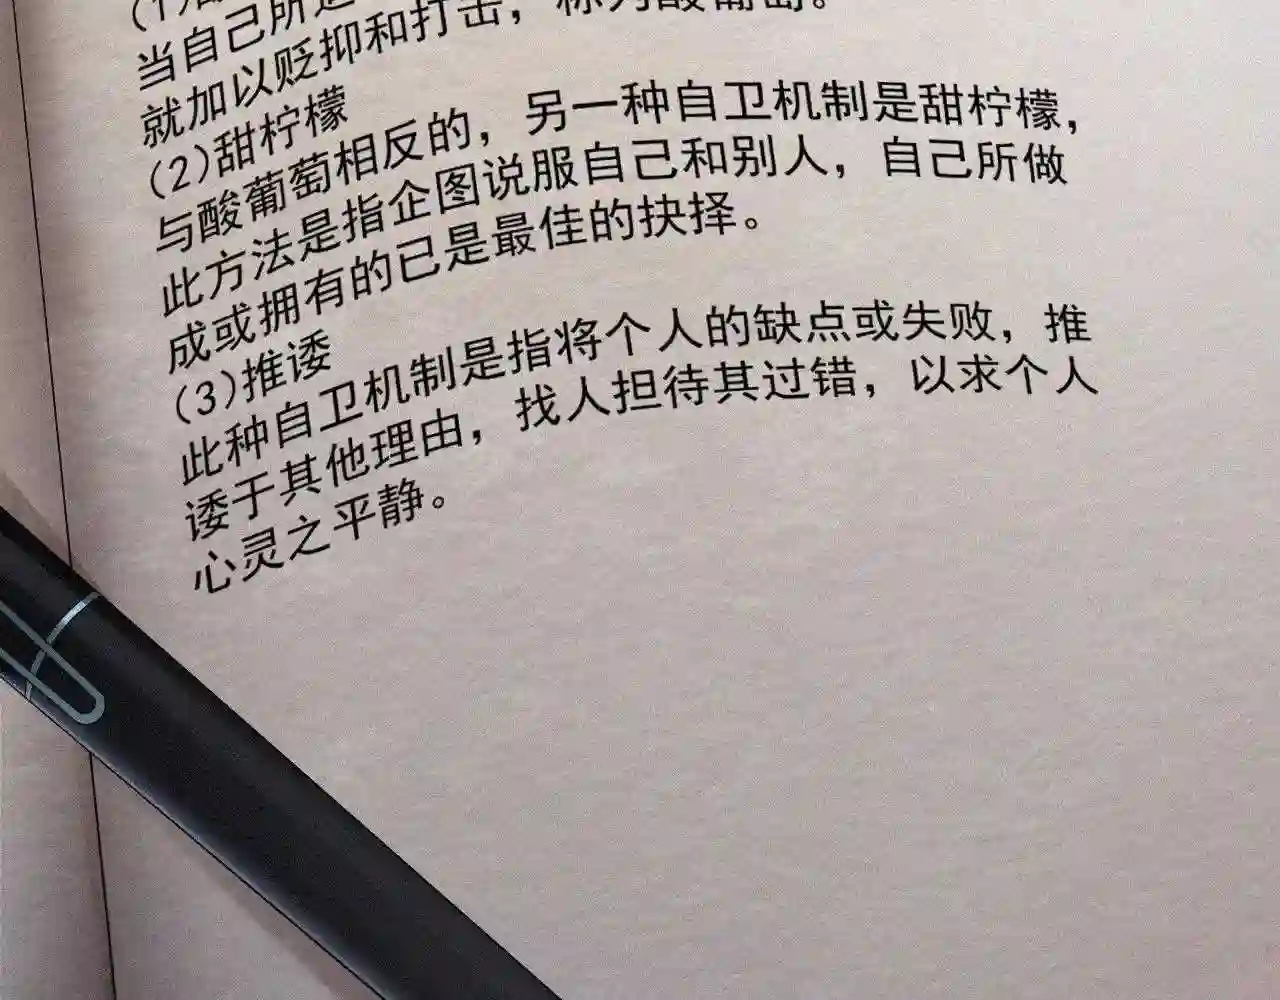 当自己所
就加以贬抑和打击，称为酸葡萄。
(2)甜柠檬
与酸葡萄相反的，另一种自卫机制是甜柠檬，
此方法是指企图说服自己和别人，自己所做
成或拥有的已是最佳的抉择。
(3)推诿
此种自卫机制是指将个人的缺点或失败，推
诿于其他理由，找人担待其过错，以求个人
心灵之平静。